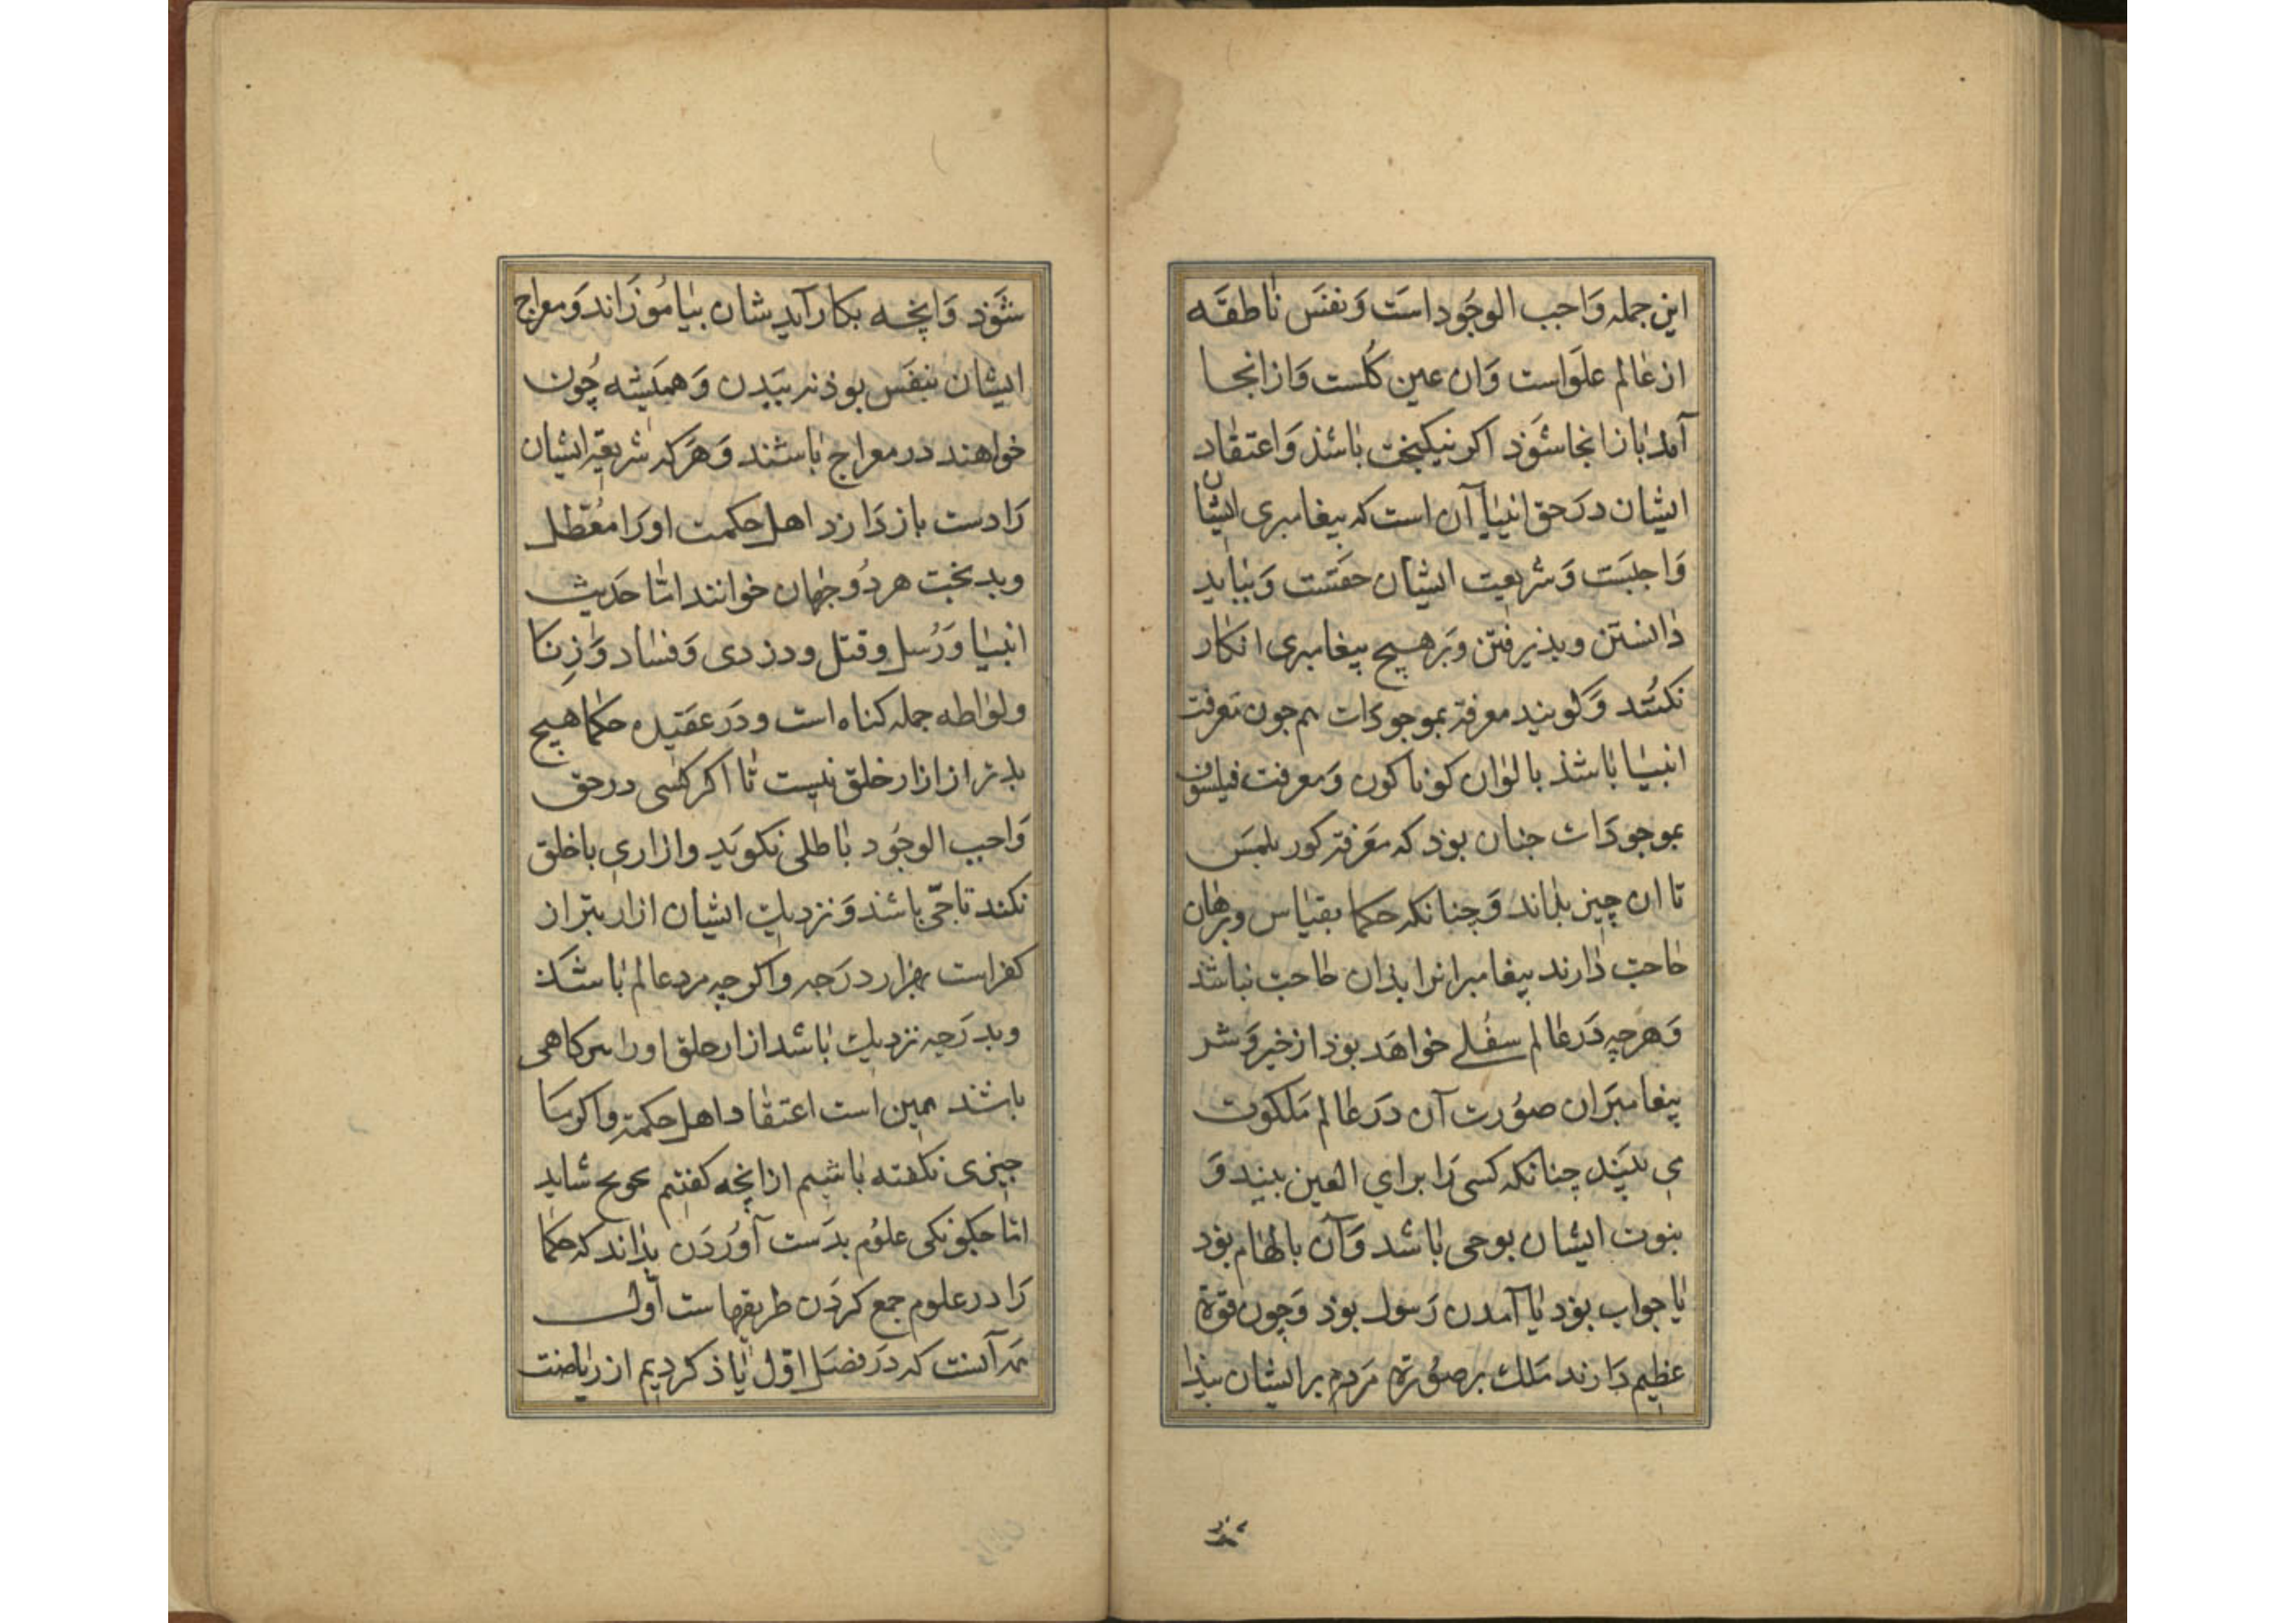 این جمله وَاجب الوجُود است وَنفسَ نٰاطقَه
از عٰالم علَواست وَان عین کُلست وَاز انجا
آمد بٰاز انجا شوَذ اکر نیکبخت بٰاشذ وَاعتقٰاد
ایشان دَرحق انبیٰا آن است که پیغامبری ایشان
وَاجبَست وَشریعت ایشان حقسَت وَببٰاید
دٰانستن وپذیرفتن وَبرهیچ پیغامبری انکار
نکنُند وَکویند معرفة بموجودَات هم جون معرفت
انبیٰا بٰاشذ بالوٰان کوناکون وَمعرفت فیلسوف
بموجودَات جنان بوذ که معَرفة کور بلمسَ
تا ان چیز بداند وَچنانکه حکما بقیٰاس وبرهٰان
حٰاجت دٰارند پیغامبرانرا بذان حٰاجت نباشذ
وَهرچه دَرعٰالم سفُلی خواهَد بوذ از خیروَشر
پیغامبرَان صوُرت آن دَرعٰالم مَلکوت
می بینَند چنانکه کسی رَا برای العین بیند وَ
بنوت ایشان بوحی بٰاشد وَآن بالهٰام بوَد
یٰا جواب بوَد یٰا آمدن رَسول بوذ وَچون قوة
عظیم دَارند مَلک برصوُرة مَردم برایشان پیذا
شوَذ وَانچه بکار آید شان بیٰامُوزَاند وَمعراج
ایشان بنفسَ بوذ نه ببَدن وَهمیَشه چُون
خواهند در معراج بٰاشند وَهرَکه شریعة ایشان
رَا دست باز دَارد اهل حکمت اورَا معُطل
وبد بخت هردُو جهان خوانند امّا حَدیث
انبیٰا وَرُسل وقتل ودزدی وَفسٰاد وَزِنَا
ولوٰاطه جمله کناه است ودَر عقَیده حکما هیچ
بدتر از ازار خلق نیست تٰا اکر کسی درحق
وَاجب الوجُود بٰاطلی نکویَد وازاری باخلق
نکند تاجی بٰاشذ وَنزدیک ایشان ازار بتر از
کفراست بهزار درَجه واکرچه مرد عالم بٰاشذ
وبدرَجه نزدیک بٰاشد ازار خلق اورا کاهی
باشذ همین است اعتقٰاد اهل حکمة واکر ما
چیزی نکفته بٰاشیم ازانچه کفتیم شاید
امّا چکونکی علوُم بدَست آورَدن بداند که حکما
رَا در علوم جمع کردَن طریقهاست اوّل
آنست که دَر فصَل اوّل یٰاذ کردیم از ریٰاضت